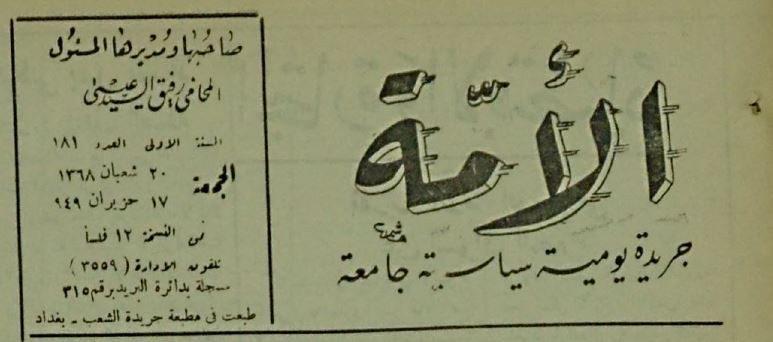 الأمة
جريدة يومية سياسية جامعة
صاحبها ومديرها المسئول
المحامي رفيق السيد عيسى
السنة الاولى العدد ١٨١
الجمعة
٢٠ شعبان ١٣٦٨
١٧ حزيران ٩٤٩
ثمن النسخة ١٢ فلساً
تلفون الادارة (٣٥٥٩)
مسجلة بدائرة البريد برقم ٣١٥
طبعت في مطبعة جريدة الشعب ـ بغداد